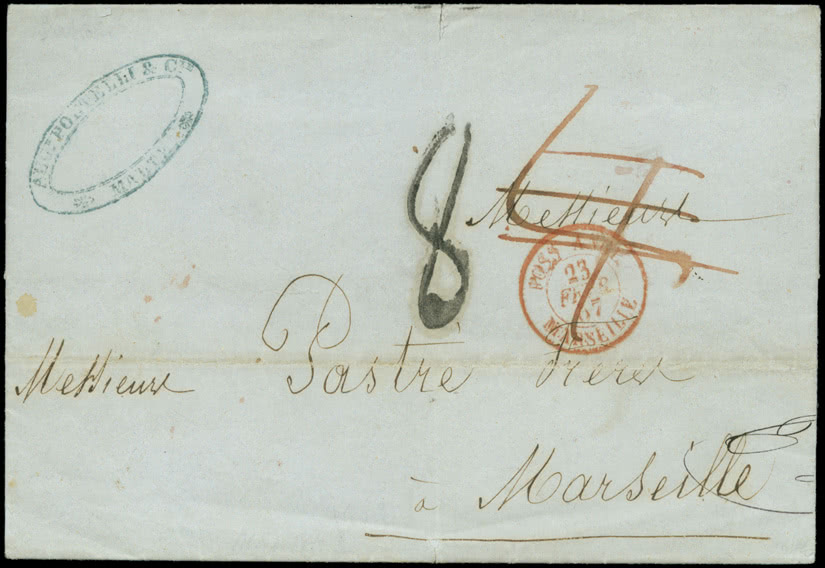 PORTELLI & CIE
MALTE
8
Messieurs
POSS. ANG.
23
FEVR
57
MARSEILLE
Messieurs Pastré frères
à Marseille